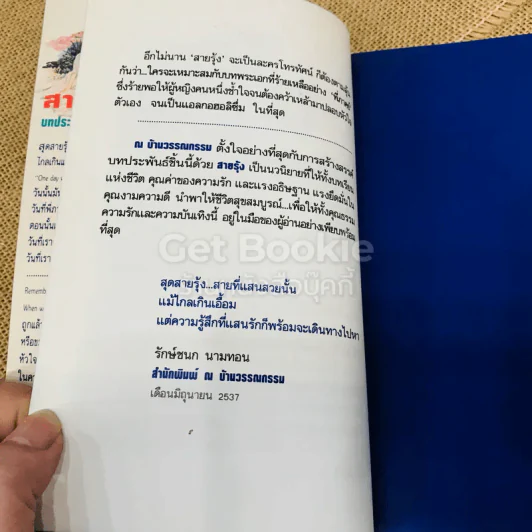 อีกไม่นาน 'สายรุ้ง' จะเป็นละครโทรทัศน์ ก็ต้อง
กันว่า...ใครจะเหมาะสมกับบทพระเอกที่ร้ายเหลืออย่าง
ซึ่งร้ายพอให้ผู้หญิงคนหนึ่งช้ำใจจนต้องคว้าเหล้ามาปลอบหัวใจ
ตัวเอง จนเป็นแอลกอฮอลิซึ่ม ในที่สุด
ณ บ้านวรรณกรรม ตั้งใจอย่างที่สุดกับการสร้างสรรค์
บทประพันธ์ชิ้นนี้ด้วย สายรุ้ง เป็นนวนิยายที่ให้ทั้งบทเรียน
แห่งชีวิต คุณค่าของความรัก และแรงอธิษฐาน แรงยึดมั่นใน
คุณงามความดี นำพาให้ชีวิตสุขสมบูรณ์...เพื่อให้ทั้งคุณธรรม
ความรักและความบันเทิงนี้ อยู่ในมือของผู้อ่านอย่างเพียบพร้อม
ที่สุด
สุดสายรุ้ง...สายที่แสนสวยนั้น
แม้ไกลเกินเอื้อม
แต่ความรู้สึกที่แสนรักก็พร้อมจะเดินทางไปหา
รักษ์ชนก นามทอน
สำนักพิมพ์ ณ บ้านวรรณกรรม
เดือนมิถุนายน 2537
สา
บทประ
สุดสายรุ้ง
ไกลเกินแ
"One day
วันนั้นมั
วันที่พี่ภา
ตอนนั้นเ
วันที่เรา
วันที่เรา
Rememb
When w
ถูกแล้ว
หรือข
หัวใจ
ในค
Get Bookie